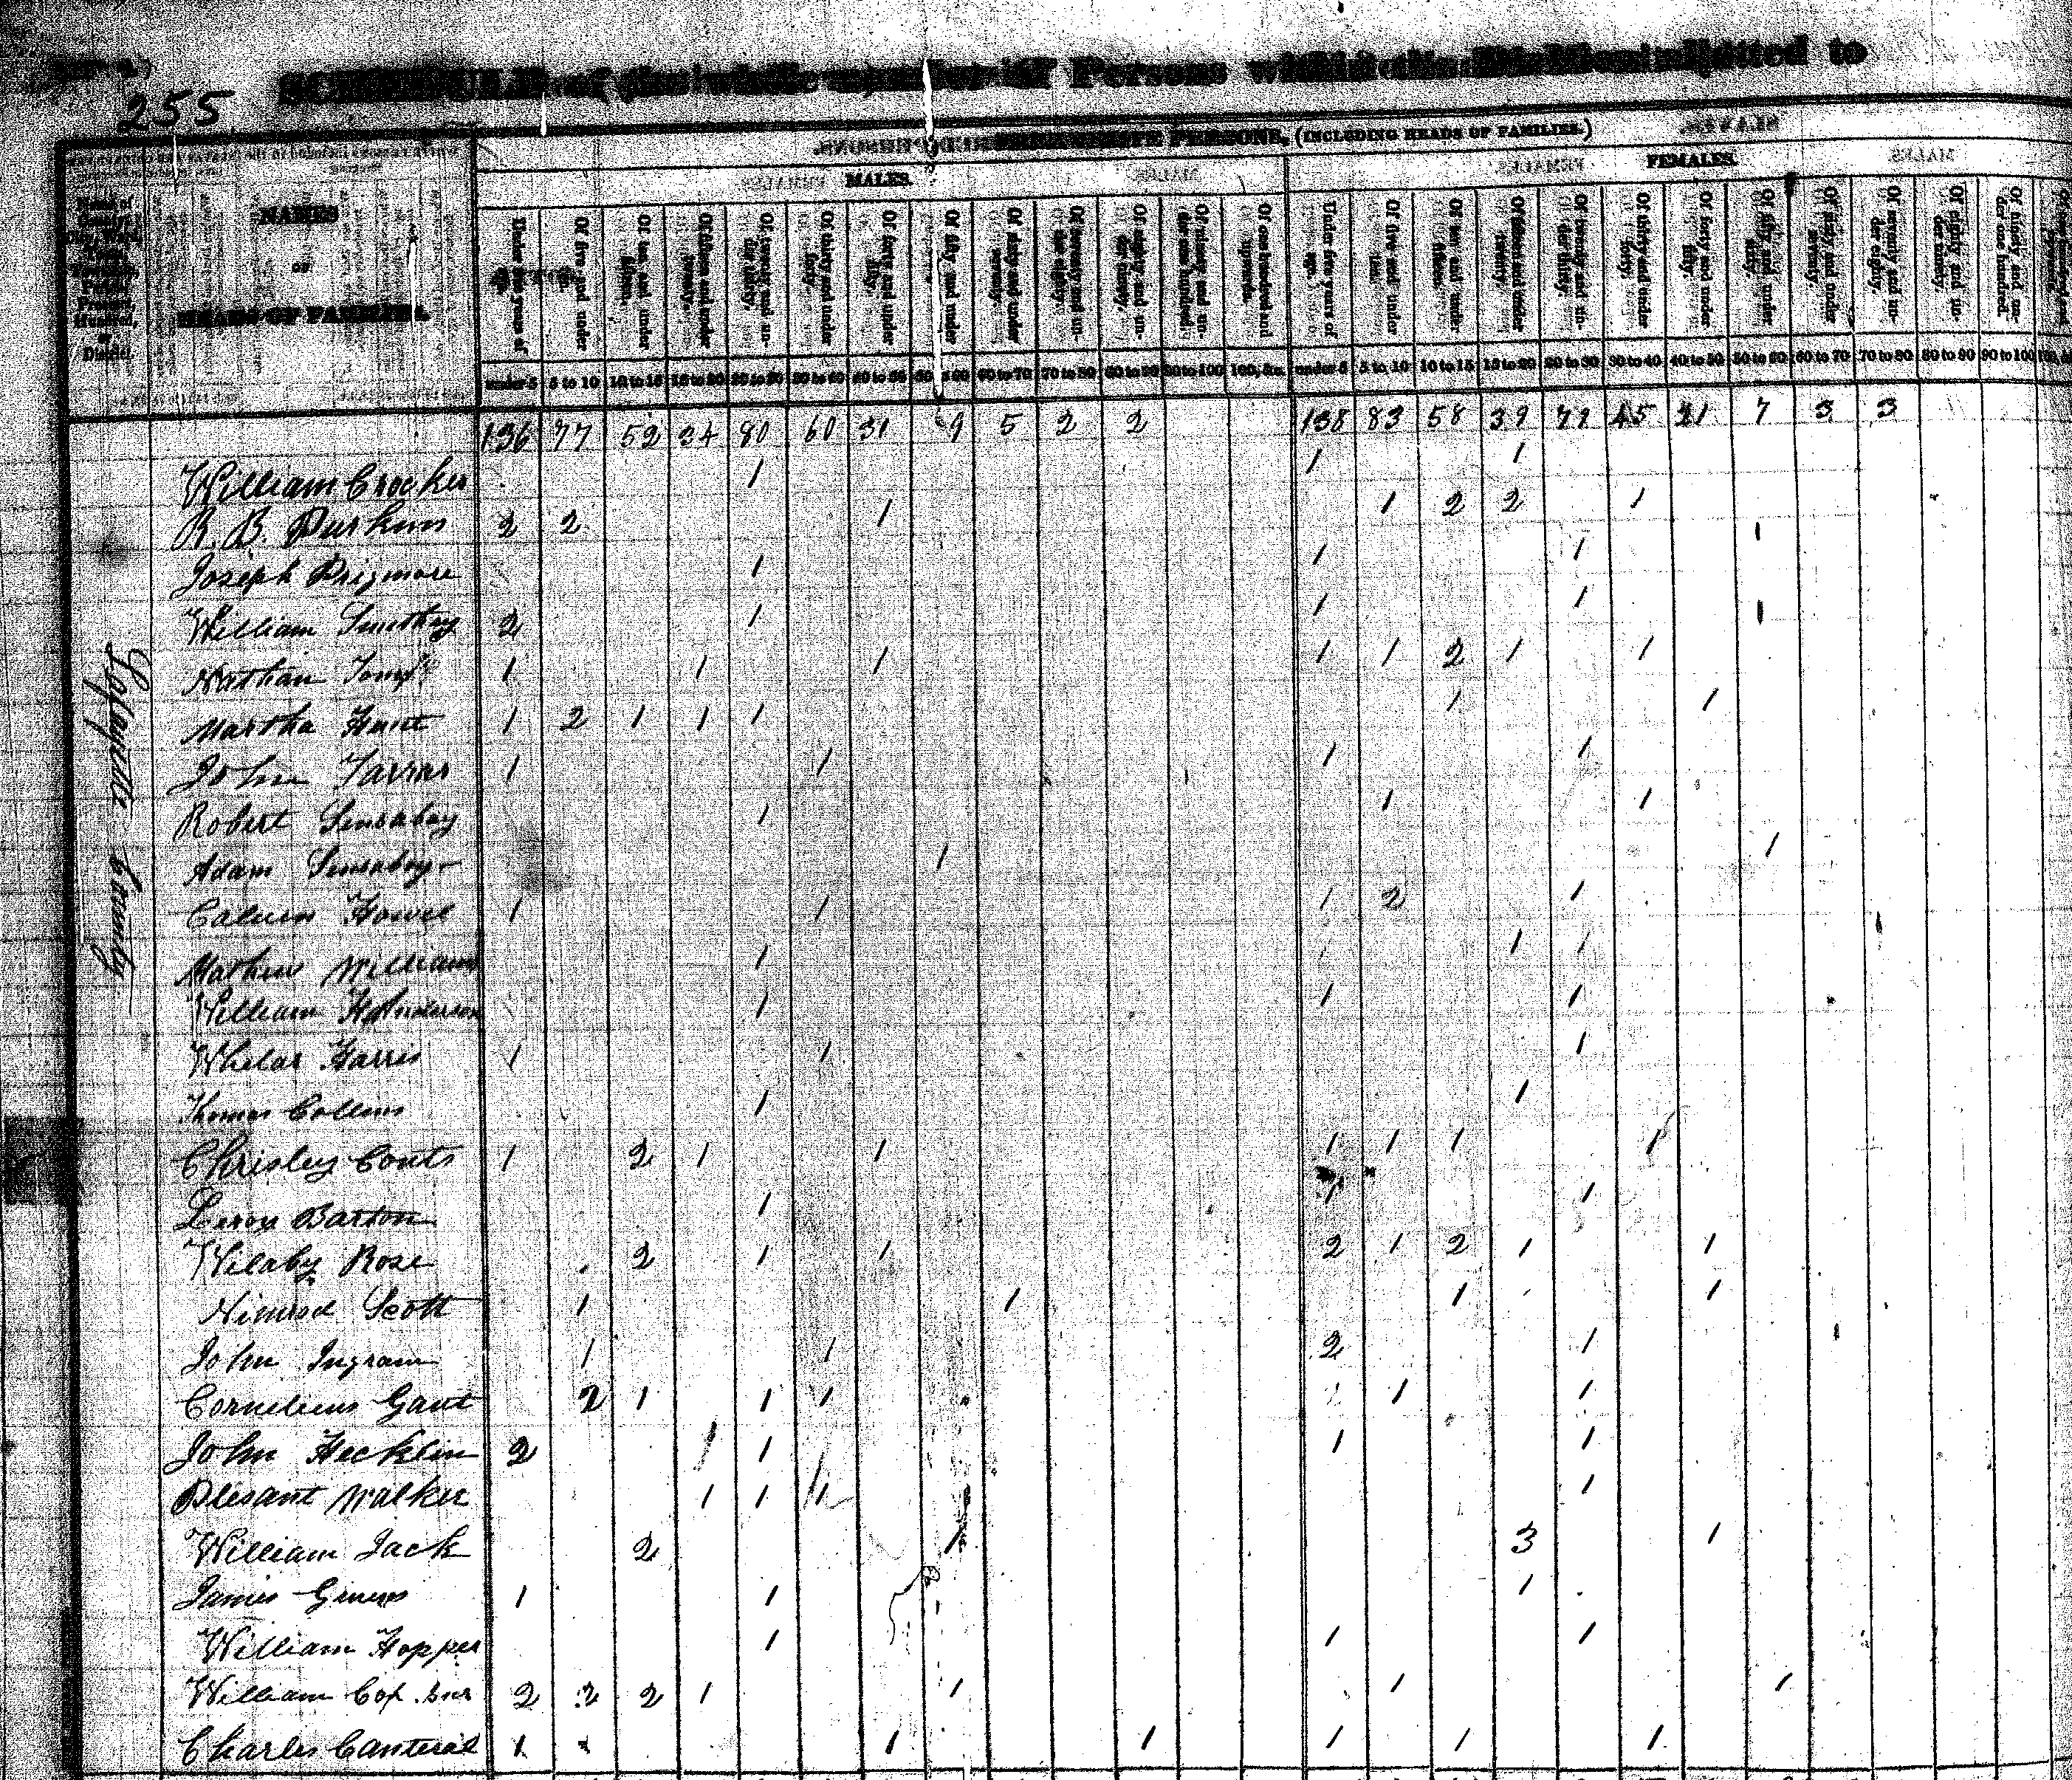 255
SCHEDULE of the whole number of Persons within the Division allotted to
FREE WHITE PERSONS, (INCLUDING HEADS OF FAMILIES.)
MALES. FEMALES.
Name of County, City, Ward, Town, Township, Parish, Precinct, Hundred, or District.
NAMES OF HEADS OF FAMILIES.
Under five years of age. Of five and under ten. Of ten and under fifteen. Of fifteen and under twenty. Of twenty and under thirty. Of thirty and under forty. Of forty and under fifty. Of fifty and under sixty. Of sixty and under seventy. Of seventy and under eighty. Of eighty and under ninety. Of ninety and under one hundred. Of one hundred and upwards. Under five years of age. Of five and under ten. Of ten and under fifteen. Of fifteen and under twenty. Of twenty and under thirty. Of thirty and under forty. Of forty and under fifty. Of fifty and under sixty. Of sixty and under seventy. Of seventy and under eighty. Of eighty and under ninety. Of ninety and under one hundred.
under 5 5 to 10 10 to 15 15 to 20 20 to 30 30 to 40 40 to 50 50 to 60 60 to 70 70 to 80 80 to 90 90 to 100 100, &c. under 5 5 to 10 10 to 15 15 to 20 20 to 30 30 to 40 40 to 50 50 to 60 60 to 70 70 to 80 80 to 90 90 to 100
136 77 52 34 80 60 31 9 5 2 2 138 83 58 39 79 45 21 7 3 3
Lafayette County
William Crocker 1 1 1
R. B. Durham 2 2 1 1 2 2 1
Joseph Prigmore 1 1 1
William Smithey 2 1 1 1
Nathan 1 1 1 1 1 2 1 1
Martha Hunt 1 2 1 1 1 1 1
John Tarrar 1 1 1 1
Robert Sensaboy 1 1 1
Adam Sensaboy 1 1
Calvin Howel 1 1 1 2 1
Mathew Williams 1 1 1
William H Anderson 1 1 1
Whelar Harris 1 1 1
Thomas Collins 1 1
Chrisley Couts 1 2 1 1 1 1 1 1
Leroy Barton 1 1 1
Wilaby Rose 2 1 1 2 1 2 1 1
Nimrod Scott 1 1 1 1
John Ingram 1 1 2 1
Cornelius Gant 2 1 1 1 1 1
John Hecklin 2 1 1 1 1
Plesant Walker 1 1 1 1
William Jack 2 1 3 1
James 1 1 1
William Hopper 1 1 1
William Cox 2 2 2 1 1 1 1
Charles Canteral 1 1 1 1 1 1